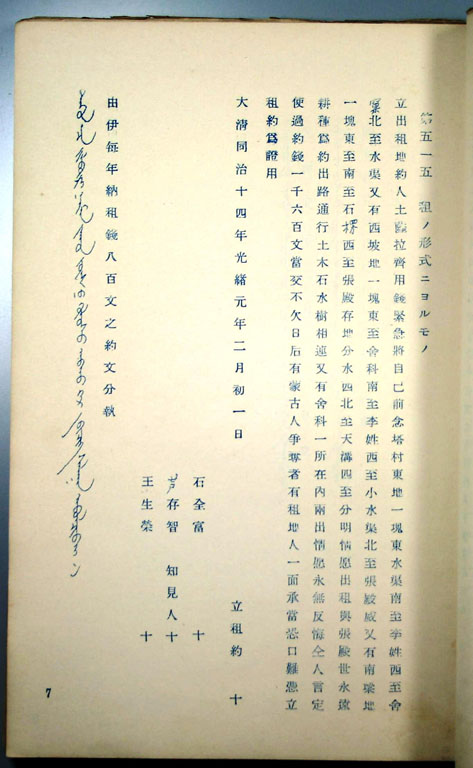 第五一五 租ノ形式ニヨルモノ
立出租地約人土默拉齊用錢緊急將自己前念塔村東地一塊東水渠南至李姓西至舍
窠北至水渠又有西坡地一塊東至舍科南至李姓西至小水渠北至張殿威又有南梁地
一塊東至南至石楞西至張殿存地分水西北至天溝四至分明情愿出租與張殿世永遠
耕種爲約出路通行土木石水樹相連又有舍科一所在內兩出情愿永無反悔仝人言定
使過約錢一千六百文當交不欠日后有蒙古人爭奪者有租地人一面承當恐口難憑立
租約爲證用
大清同治十四年光緖元年二月初一日
立租約 十
石全富 十
芦存智 知見人 十
王生榮 十
由伊每年納租錢八百文之約文分執
7